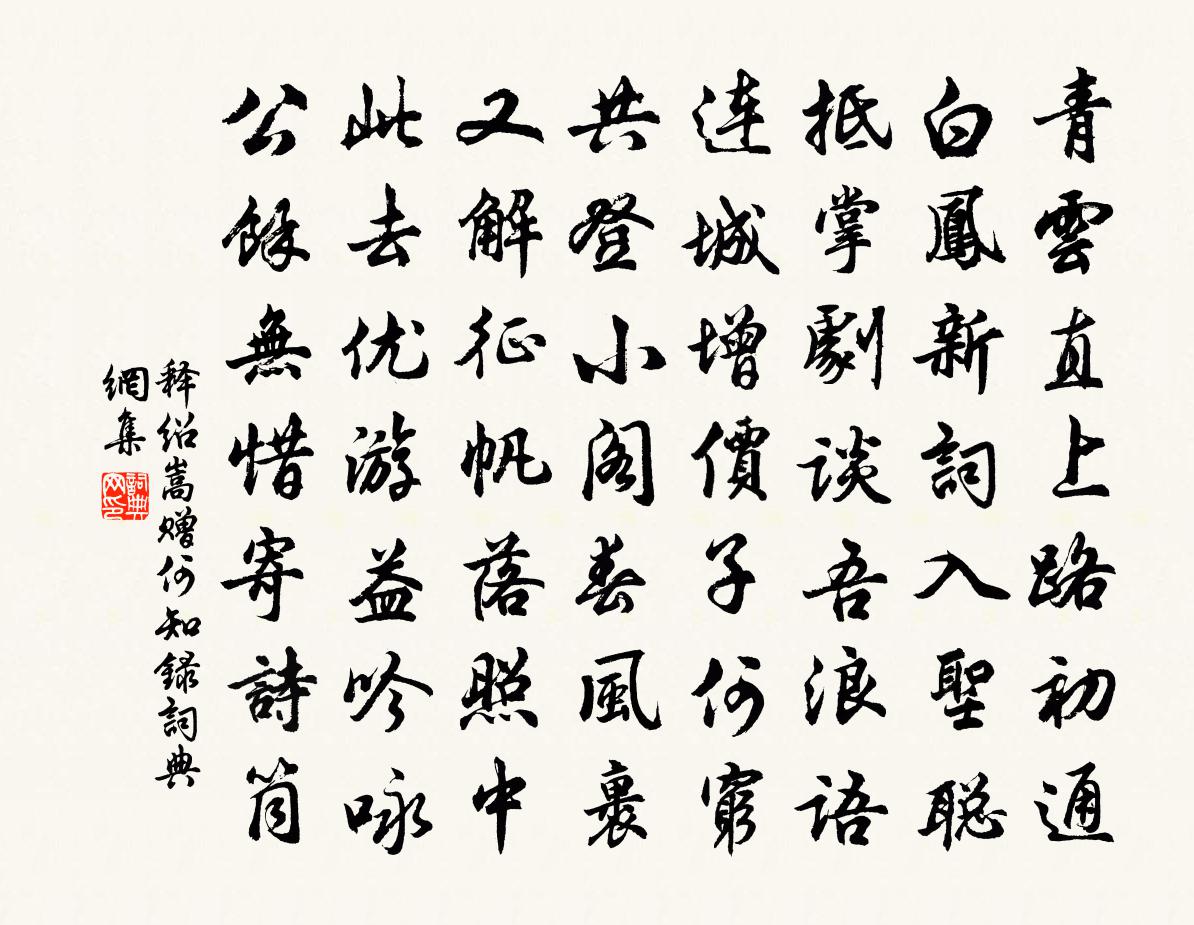 青雲直上路初通
白鳳新詞入聖聡
抵掌劇谈吾浪语
连城增價子何窮
共登小阁春風裏
又解征帆落照中
此去优游益吟咏
公餘無惜寄詩筒
释绍嵩赠何知録詞典
網集
詞典网印